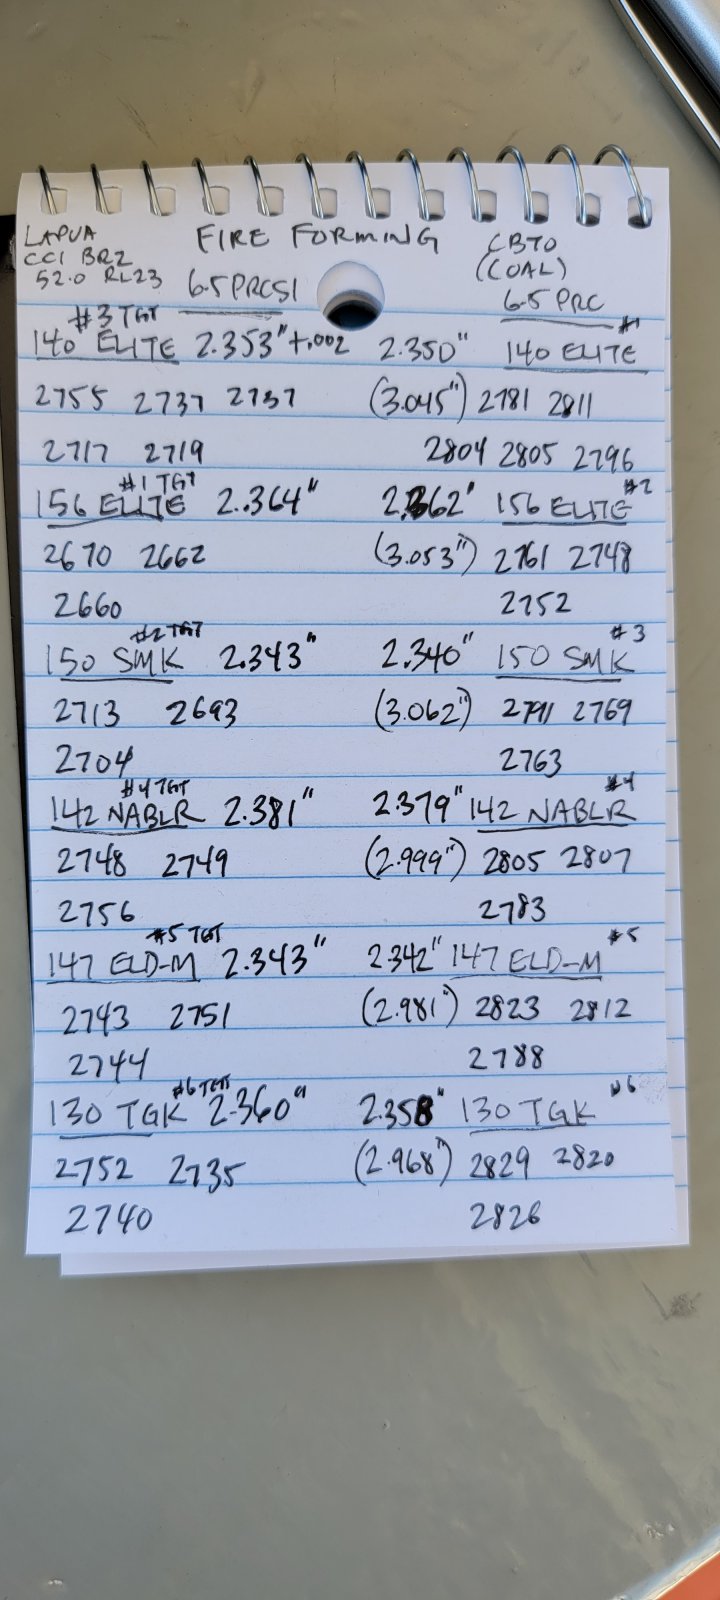 LAPUA FIRE FORMING CBTO
CCI BR2 (COAL)
52.0 RL23 6.5 PRCSI 6.5 PRC
#3 TGT #1
140 ELITE 2.353" +.002 2.350" 140 ELITE
2755 2737 2737 (3.045") 2781 2811
2717 2719 2804 2805 2796
#1 TGT #2
156 ELITE 2.364" 2.362" 156 ELITE
2670 2662 (3.053") 2761 2748
2660 2752
#2 TGT #3
150 SMK 2.343" 2.340" 150 SMK
2713 2693 (3.062") 2791 2769
2704 2763
#4 TGT #4
142 NABLR 2.381" 2.379" 142 NABLR
2748 2749 (2.999") 2805 2807
2756 2783
#5 TGT #5
147 ELD-M 2.343" 2.342" 147 ELD-M
2743 2751 (2.981") 2823 2812
2744 2788
#6 TGT #6
130 TGK 2.360" 2.358" 130 TGK
2752 2735 (2.968") 2829 2820
2740 2826